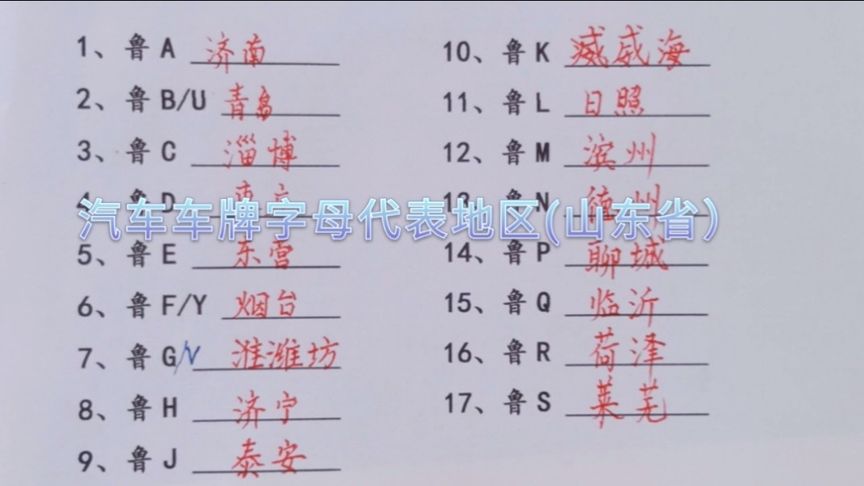 1、鲁 A 济南
2、鲁 B/U 青岛
3、鲁 C 淄博
4、鲁 D
5、鲁 E 东营
6、鲁 F/Y 烟台
7、鲁 G/V 潍坊
8、鲁 H 济宁
9、鲁 J 泰安
10、鲁 K 威海
11、鲁 L 日照
12、鲁 M 滨州
13、鲁 N 德州
14、鲁 P 聊城
15、鲁 Q 临沂
16、鲁 R 荷泽
17、鲁 S 莱芜
汽车车牌字母代表地区(山东省)